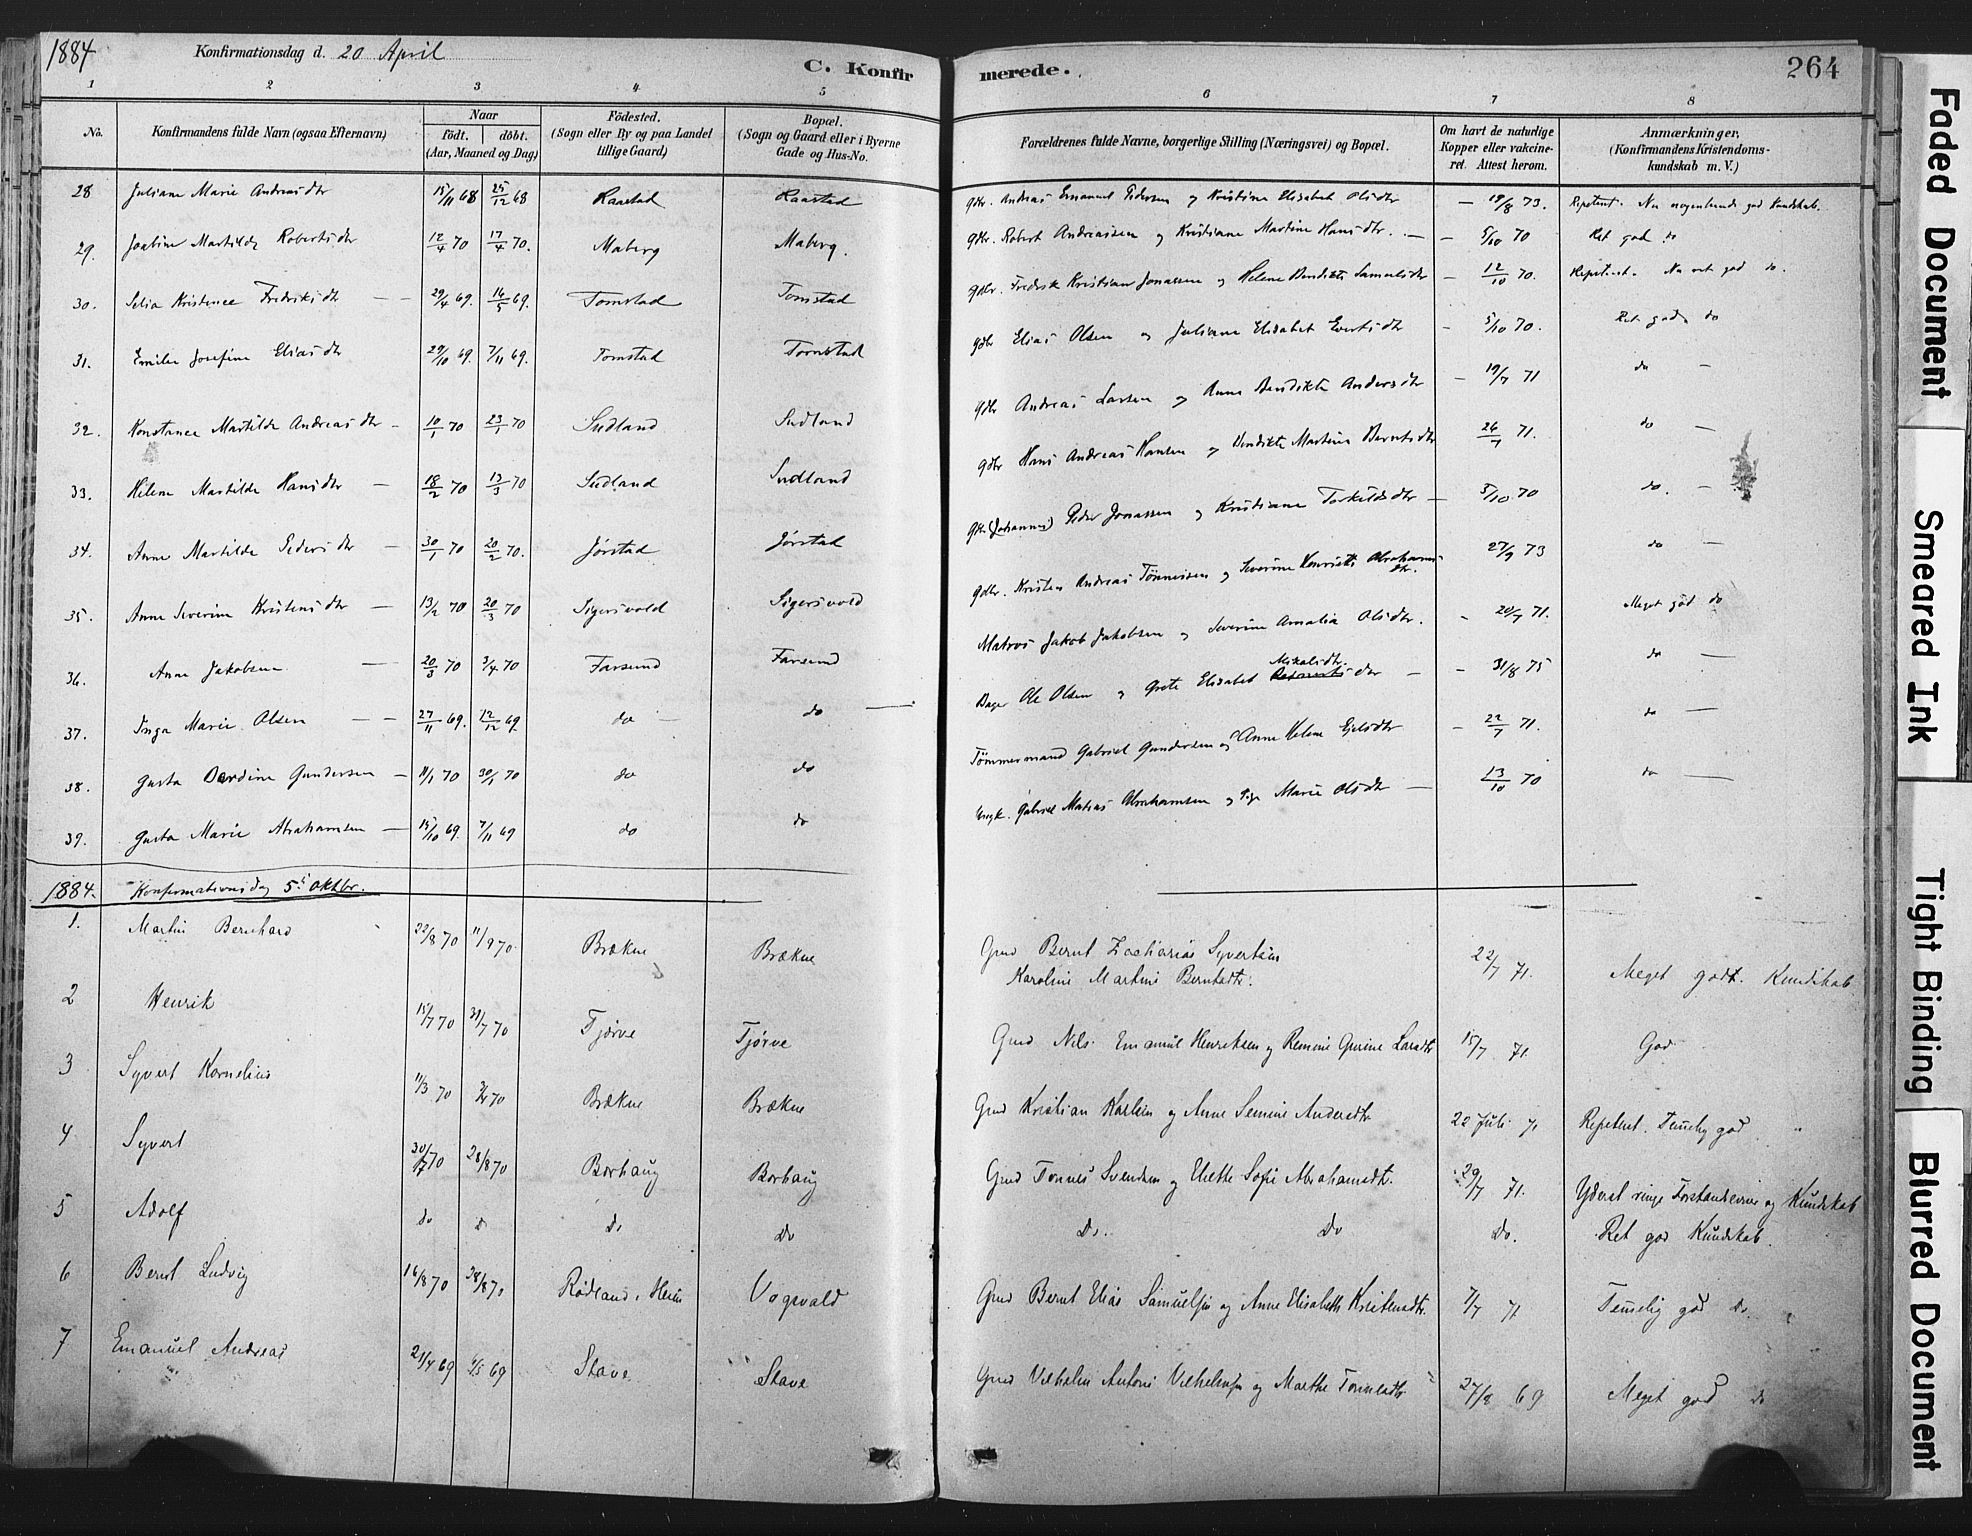 1884 Konfirmationsdag d. 20 April
C. Konfirmerede. 264
1 2 3 4 5 6 7 8
No. Konfirmandens fulde Navn (ogsaa Efternavn) Naar Födt. döbt. (Aar, Maaned og Dag) Födested. (Sogn eller By og paa Landet tillige Gaard) Bopæl. (Sogn og Gaard eller i Byerne Gade og Hus-No. Forældrenes fulde Navne, borgerlige Stilling (Næringsvei) og Bopæl. Om havt de naturlige Kopper eller vakcineret. Attest herom. Anmærkninger, (Konfirmandens Kristendomskundskab m. V.)
28 Juliane Marie Andreasdtr 15/11 68 25/12 68 Raastad Raastad Gdbr. Andreas Emanuel Pedersen og Kristine Elisabet Olsdtr — 19/8 73. Repetent. Nu nogenlunde god Kundskab.
29. Mathilde Robertsdtr 12/4 70 17/4 70. Maberg Maberg. Gdbr. Robert Andreassen og Kristiane Martine Hansdtr. — 5/10 70 Ret god do
30. Selia Kristence Fredriksdtr — 29/4 69. 16/5 69. Tomstad Tomstad Gdbr. Fredrik Kristian Jonassen og Helene Bendikte Samuelsdtr — 12/10 70. Repetent. Nu ret god do.
31. Emilie Josefine Eliasdtr 29/10 69. 7/11 69. Tomstad Tomstad Gdbr Elias Olsen og Juliane Elisabet Evertsdtr — 5/10 70. Ret god do
32. Konstance Martilde Andreasdtr — 10/1 70 23/1 70 Sudland Sudland Gdbr Andreas Larsen og Anne Bendikte Andersdtr — 19/7 71 do —
33. Helene Martilde Hansdtr — 18/2 70 13/3 70 Sudland Sudland Gdbr Hans Andreas Hansen og Bendikte Martine Berntsdtr 26/7 71. do —
34. Anne Martilde Pedersdtr — 30/1 70 20/2 70. Jørstad Jørstad Gdbr (Johannes) Peder Jonassen og Kristiane Torkildsdtr — 5/10 70 do. —
35. Anne Severine Kristensdtr — 13/2 70 20/3 70 Sigersvold Sigersvold Gdbr. Kristen Andreas Tønnessen og Severine Henriette Abrahamsdtr. 27/9 73 do —
36. Anne Jakobsen — 20/3 70 3/4 70 Farsund Farsund Matros Jakob Jakobsen og Severine Amalia Olsdtr. — 20/7 71. Meget god do
37. Inga Marie Olsen — 27/11 69. 12/12 69. do — do — Bager Ole Olsen og Grete Elisabet Nikolsdtr. — 31/8 75 do —
38. Gusta Gundersen — 11/1 70 30/1 70 do do Tømmermand Gabriel Gundersen og Anne Helene Ejelsdtr — 22/7 71. do —
39. Gusta Marie Abrahamsen — 15/10 69. 7/11 69 do do Ungk. Gabriel Matias Abrahamsen og Pige Marie Olsdtr — 13/10 70 do —
1884. Konfirmationsdag 5te Oktbr.
1. Martin Bernhard 22/8 70 11/9 70. Brækne Brækne Gmd Bernt Zacharias Syvertsen
Karoline Martine Berntsdtr. 22/7 71. Meget godt. Kundskab
2 Henrik 15/7 70 31/7 70 Tjørve Tjørve Gmd Nils Emanuel Henriksen og Remine Gurine Larsdtr 15/7 71. God
3 Syvert Kornelius 11/3 70 70 Brækne Brækne Gmd Kristian Karlsen og Anne Semine Andersdtr 22 Juli 71 Repetent. Temelig god
4 Syvert 30/7 70 28/8 70 Borhaug Borhaug Gmd Tønnes Svendsen og Elrette Sofie Abrahamsdtr. 29/7 71. Yderst ringe Forstandsevner og Kundskab
5 Adolf do do do Do Do. Do Do. Ret god Kundskab.
6 Bernt Ludvig 16/8 70 28/8 70 Rødland, Herm Vogsvold Gmd Bernt Elias Samuelsen og Anne Elisabeth Kristensdtr. 7/7 71 Temelig god Do
7 Emanuel Andreas 21/4 69 4/5 69 Stave Stave Gmd Vilhelm Antoni Vilhelmsen og Marthe Tønnesdtr 27/8 69 Meget god do
Faded Document
Smeared Ink
Tight Binding
Blurred Document